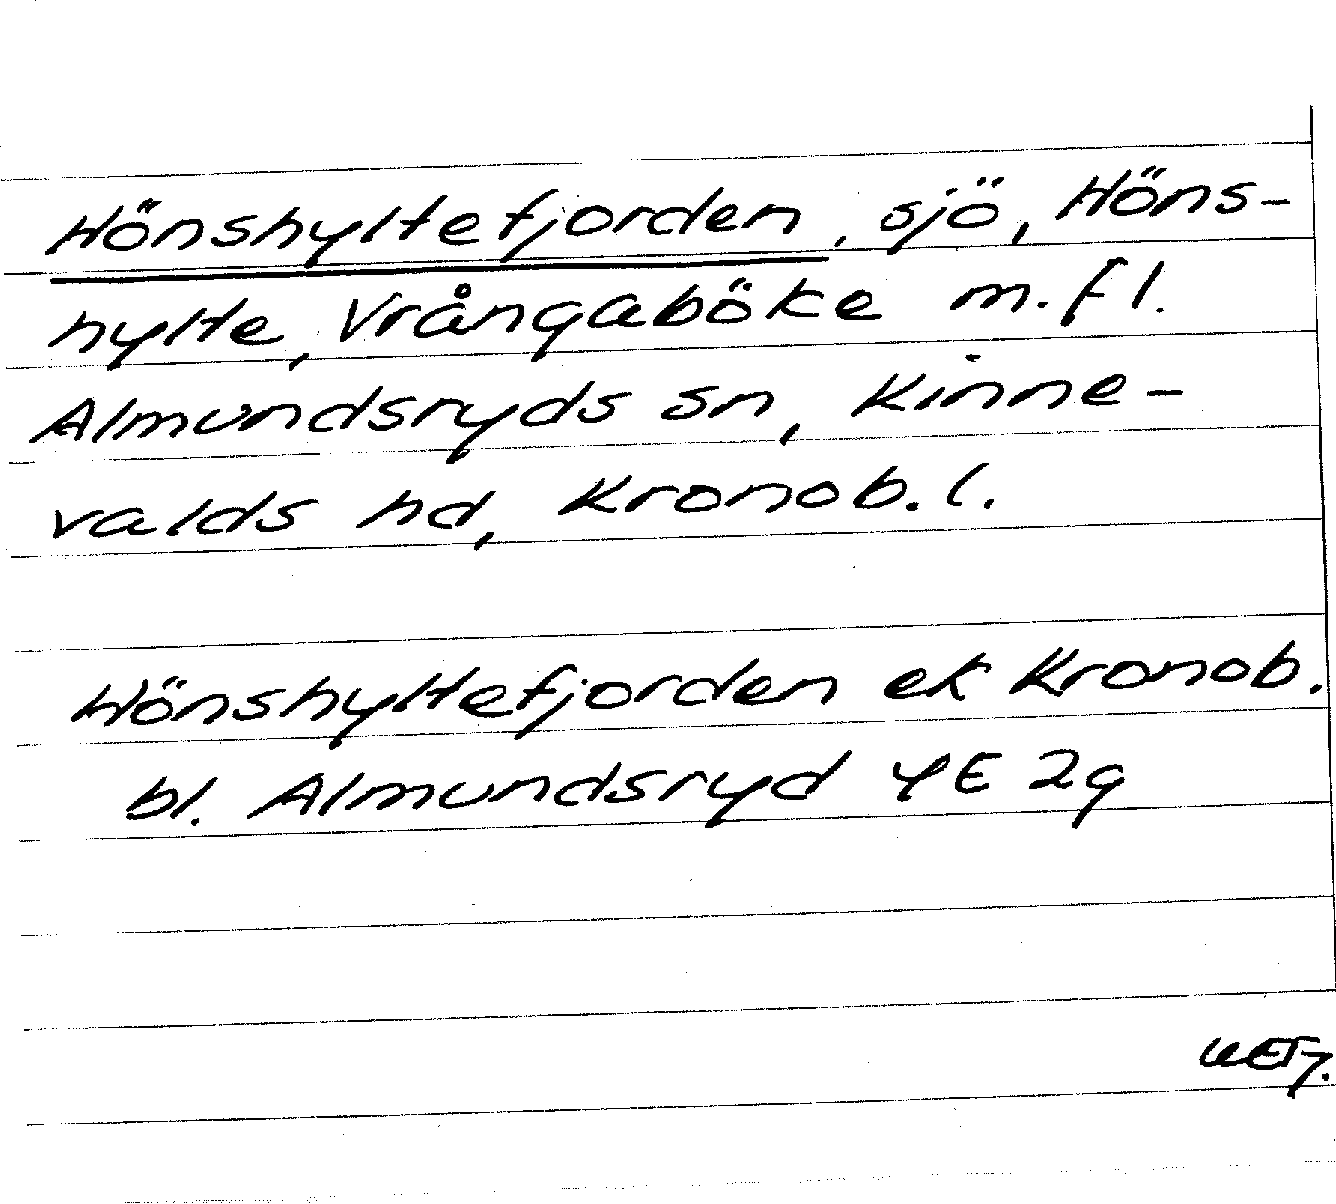 Hönshyltefjorden, sjö, Höns-
hylte, Vrångaböke m.fl.
Almundsryds sn, Kinne-
valds hd, Kronob. l.
Hönshyltefjorden ek Kronob.
bl. Almundsryd 4E 2g